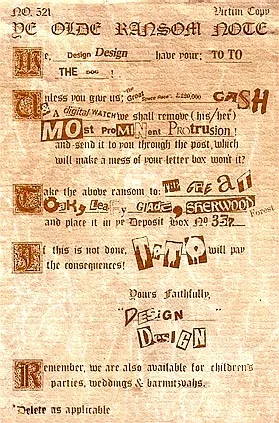 NO. 521 Victim Copy
YE OLDE RANSOM NOTE
We, Design Design have your; TO TO
THE DOG !
Unless you give us; The Great Space Race". £220,000 CASH
& A digital WATCH we shall remove (his/her)
MOst ProMINent PrOtrusion !
and send it to you through the post, which
will make a mess of your letter box won't it?
Take the above ransom to: THE GREAT
Oak, Leafy GLADE, SHERWOOD Forest
and place it in ye Deposit Box Nº 357
If this is not done, ToTO will pay
the consequences!
Yours Faithfully,
"DESIGN
DesIGN"
Remember, we are also available for children's
parties, weddings & barmitzvahs.
*Delete as applicable